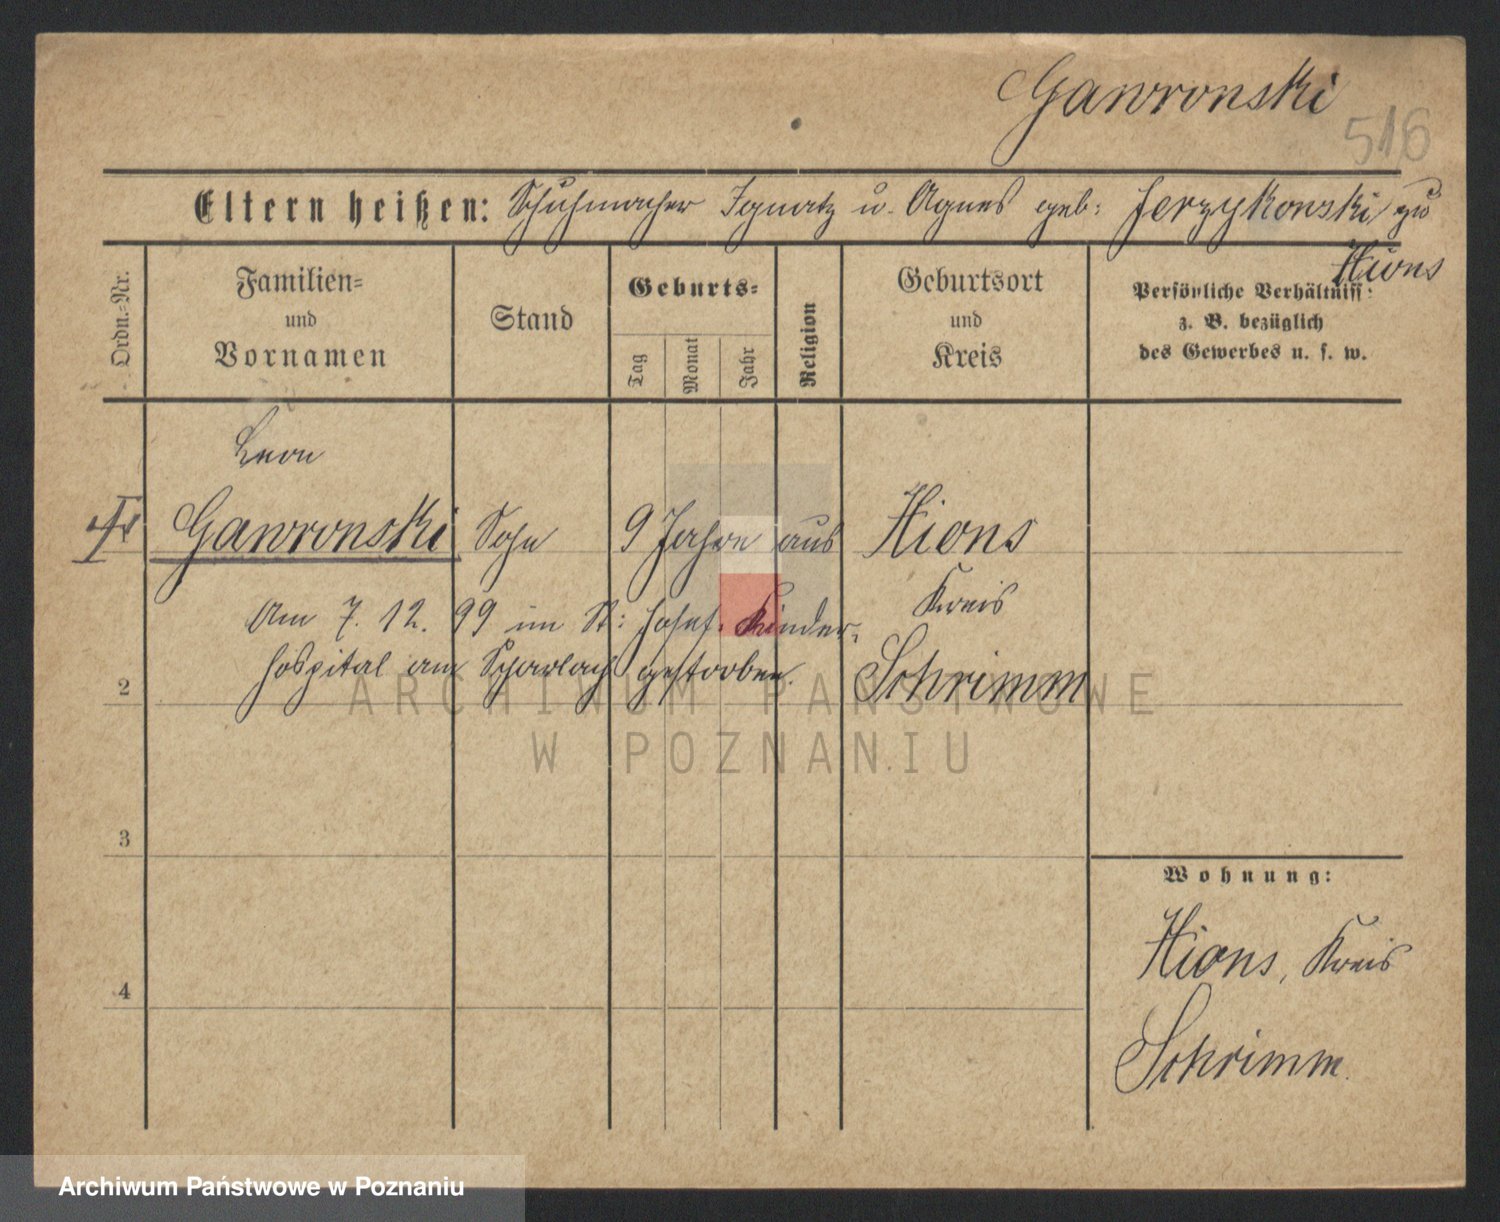 Gawronski
516
Eltern heißen: Schuhmacher Ignatz u. Agnes geb: Jerzykonski zu
Xions
Ordn.-Nr.
Familien-
und
Vornamen
Stand
Geburts-
Tag
Monat
Jahr
Religion
Geburtsort
und
Kreis
Persönliche Verhältniss-
z. B. bezüglich
des Gewerbes u. s. w.
Leon
Gawronski Sohn 9 Jahre aus Xions
Kreis
Am 7. 12. 99 im St: Josef-Kinder-
hospital am Scharlach gestorben. Schrimm
2
ARCHIWUM PAŃSTWOWE
W POZNANIU
3
Wohnung:
Xions, Kreis
4
Schrimm.
Archiwum Państwowe w Poznaniu